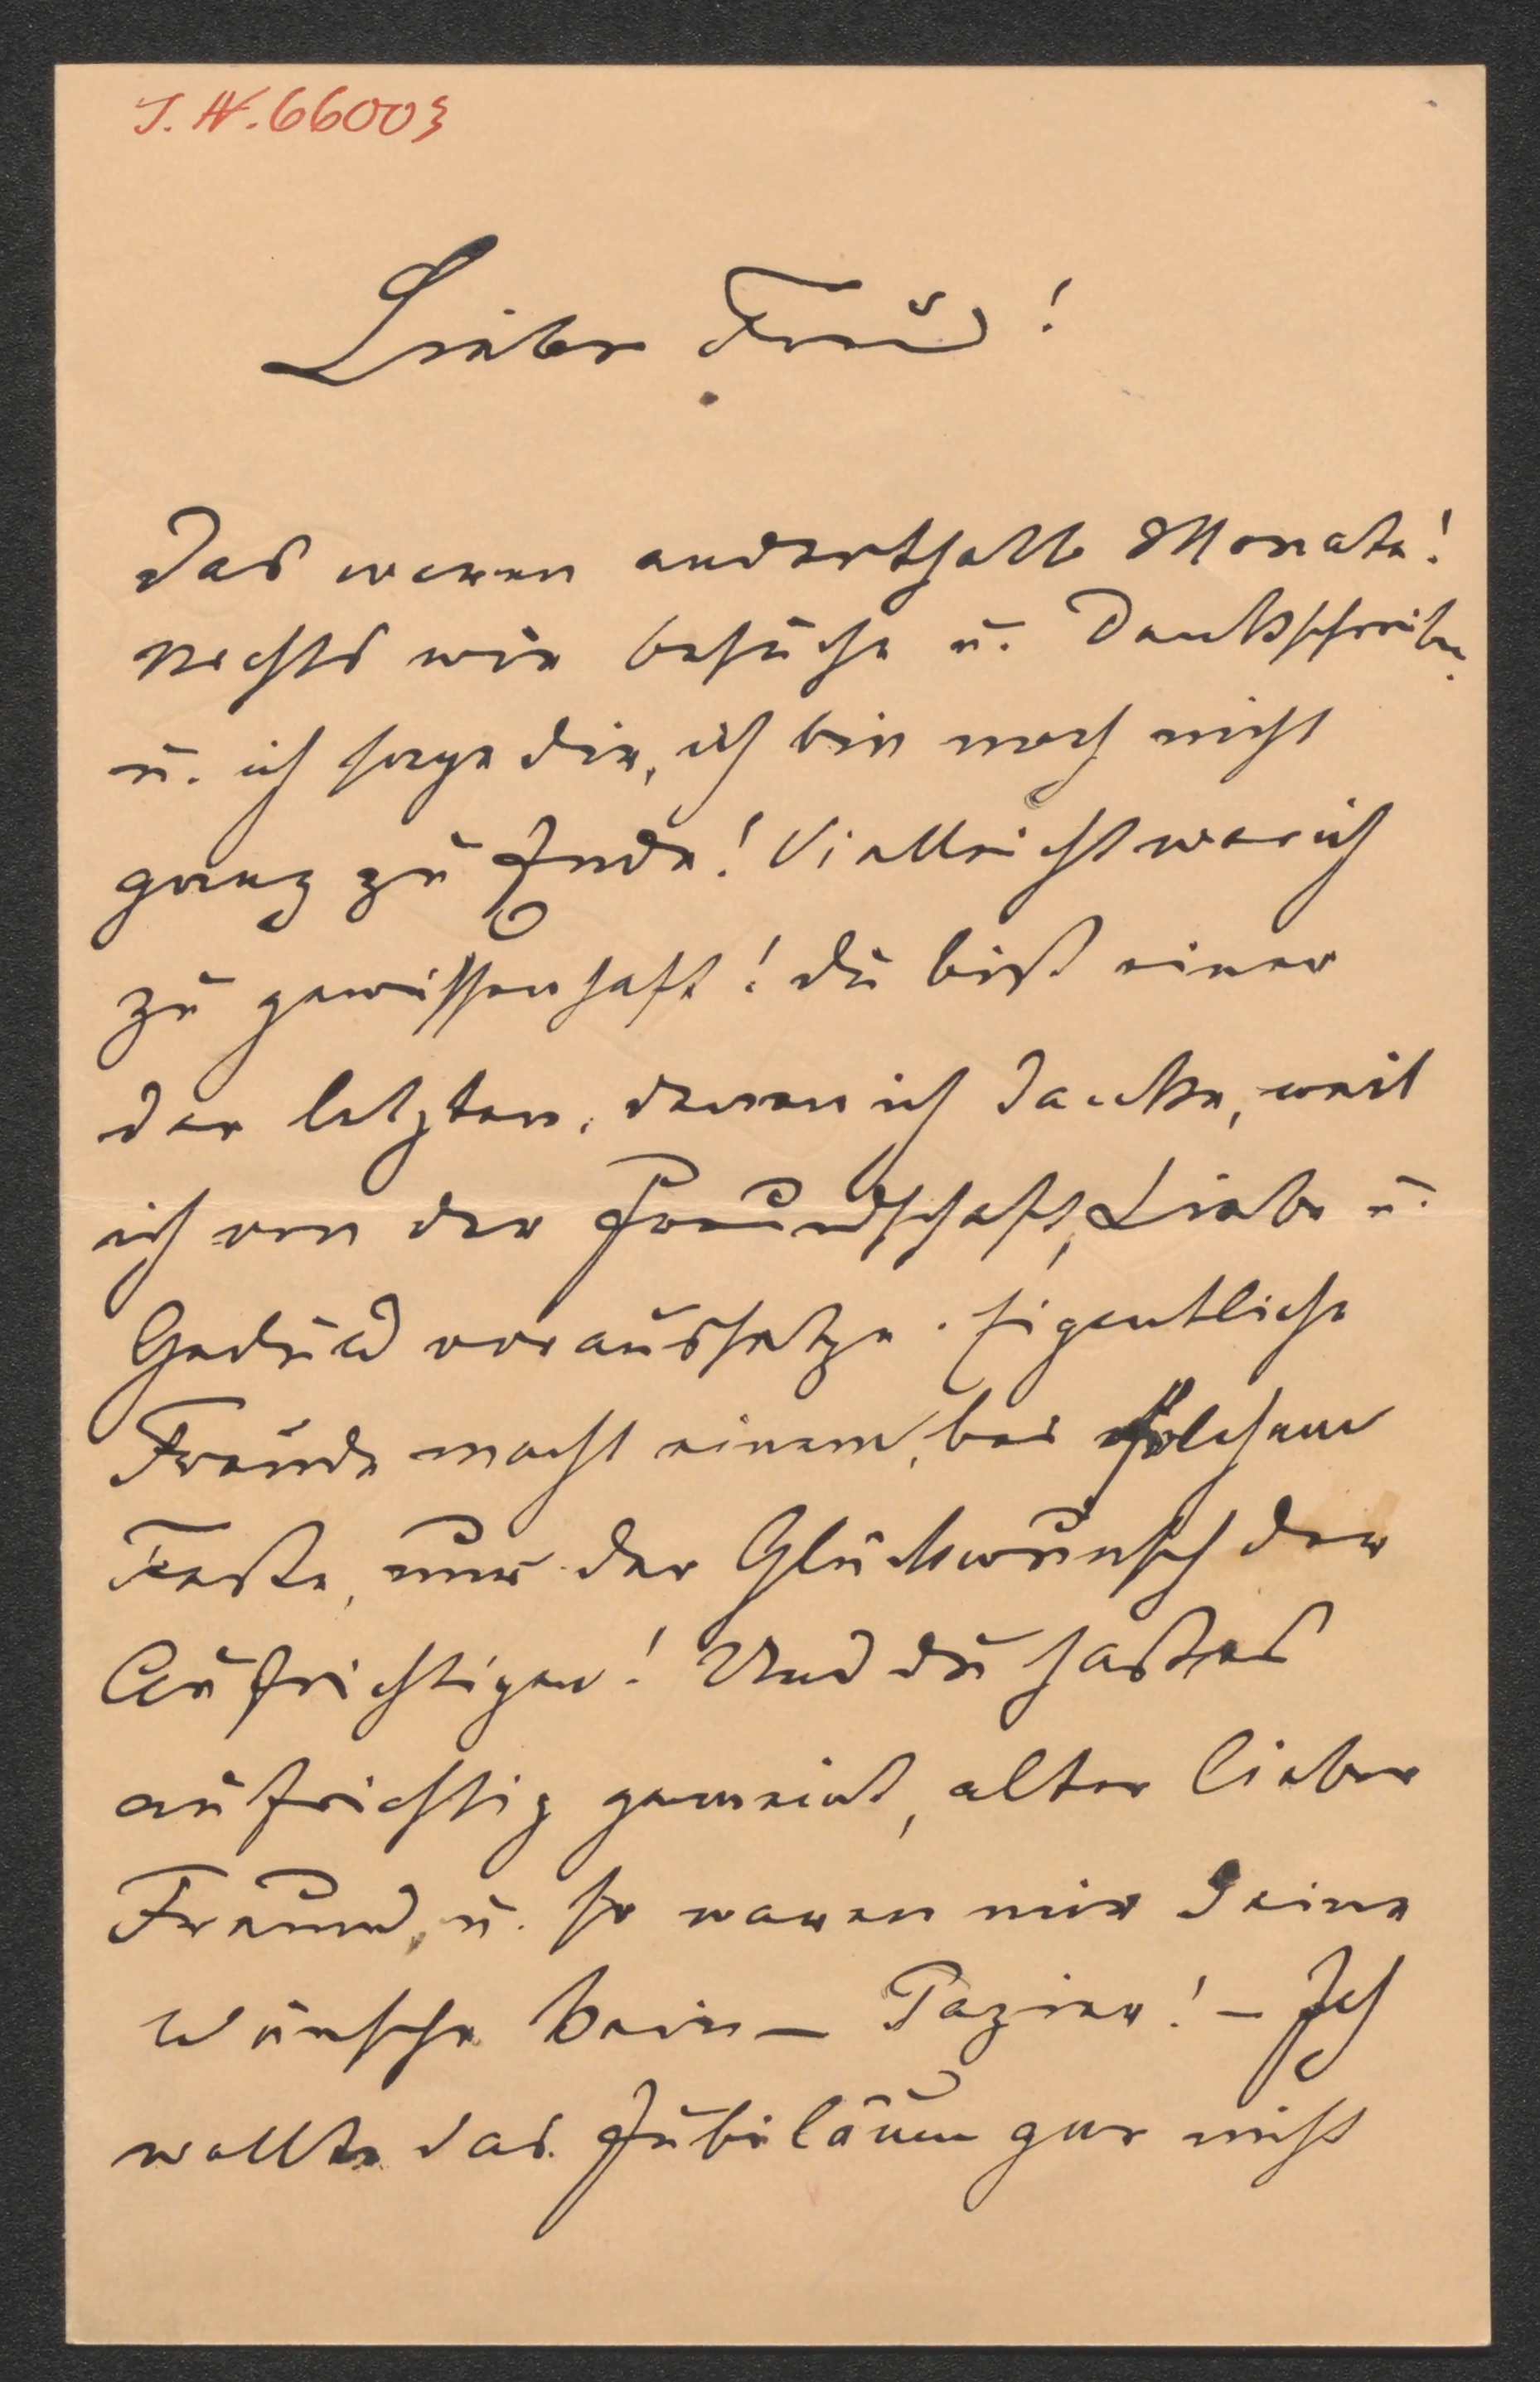 J. N. 66003
Lieber Freund!
Das waren anderthalb Monate!
Nichts wie Besuche u. Dankschreiben
u. ich sage dir, ich bin noch nicht
ganz zu Ende! Vielleicht war ich
zu gewissenhaft! Du bist einer
der letzten, denen ich danke, weil
ich von der Freundschaft, Liebe u.
Geduld voraussetze. Eigentliche
Freude macht einem, bei solchem
Feste, nur der Glückwunsch der
Aufrichtigen! Und du hast es
aufrichtig gemeint, alter lieber
Freund, u. so waren mir Deine
Wünsche kein – Papier! – Ich
wollte das Jubiläum gar nicht